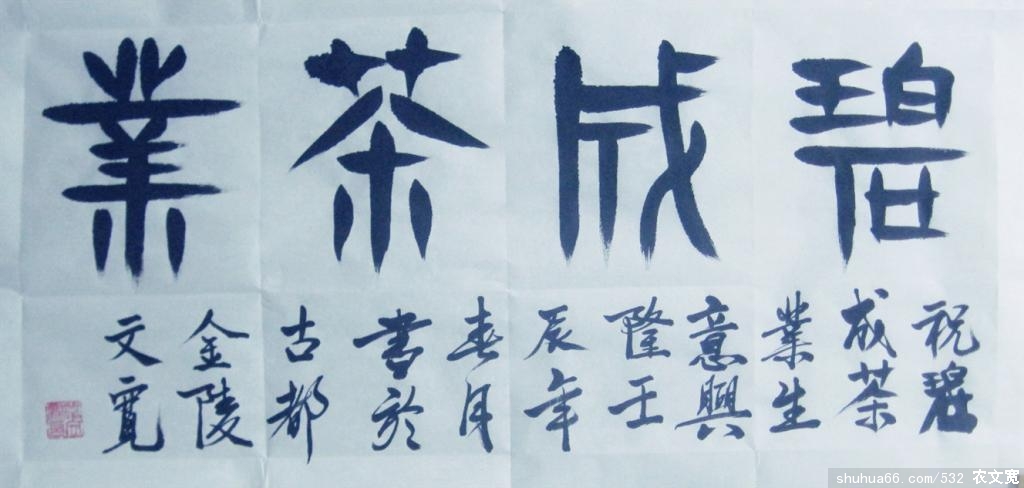 碧成茶業
祝碧
成茶
業生
意興
隆壬
辰年
春月
書於
古都
金陵
文寬
shuhua66.com/532 农文宽